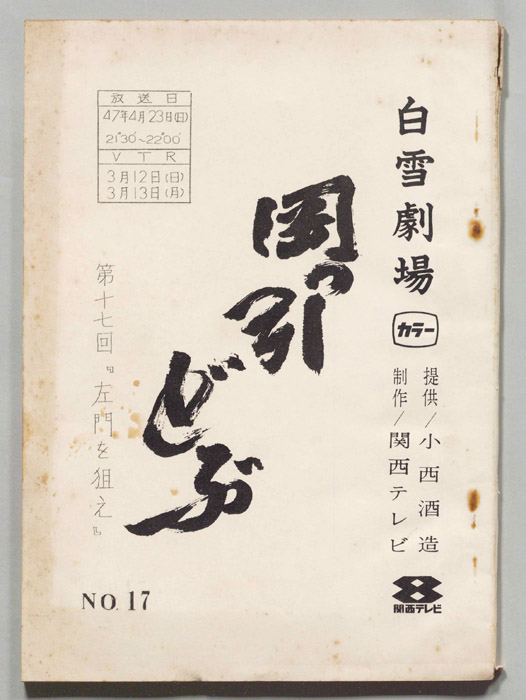 白雪劇場
カラー
提供/小西酒造
制作/関西テレビ
関西テレビ
岡っ引どぶ
放送日
47年4月23日(日)
21°30′~22°00′
VTR
3月12日(日)
3月13日(月)
第十七回『左門を狙え』
NO.17